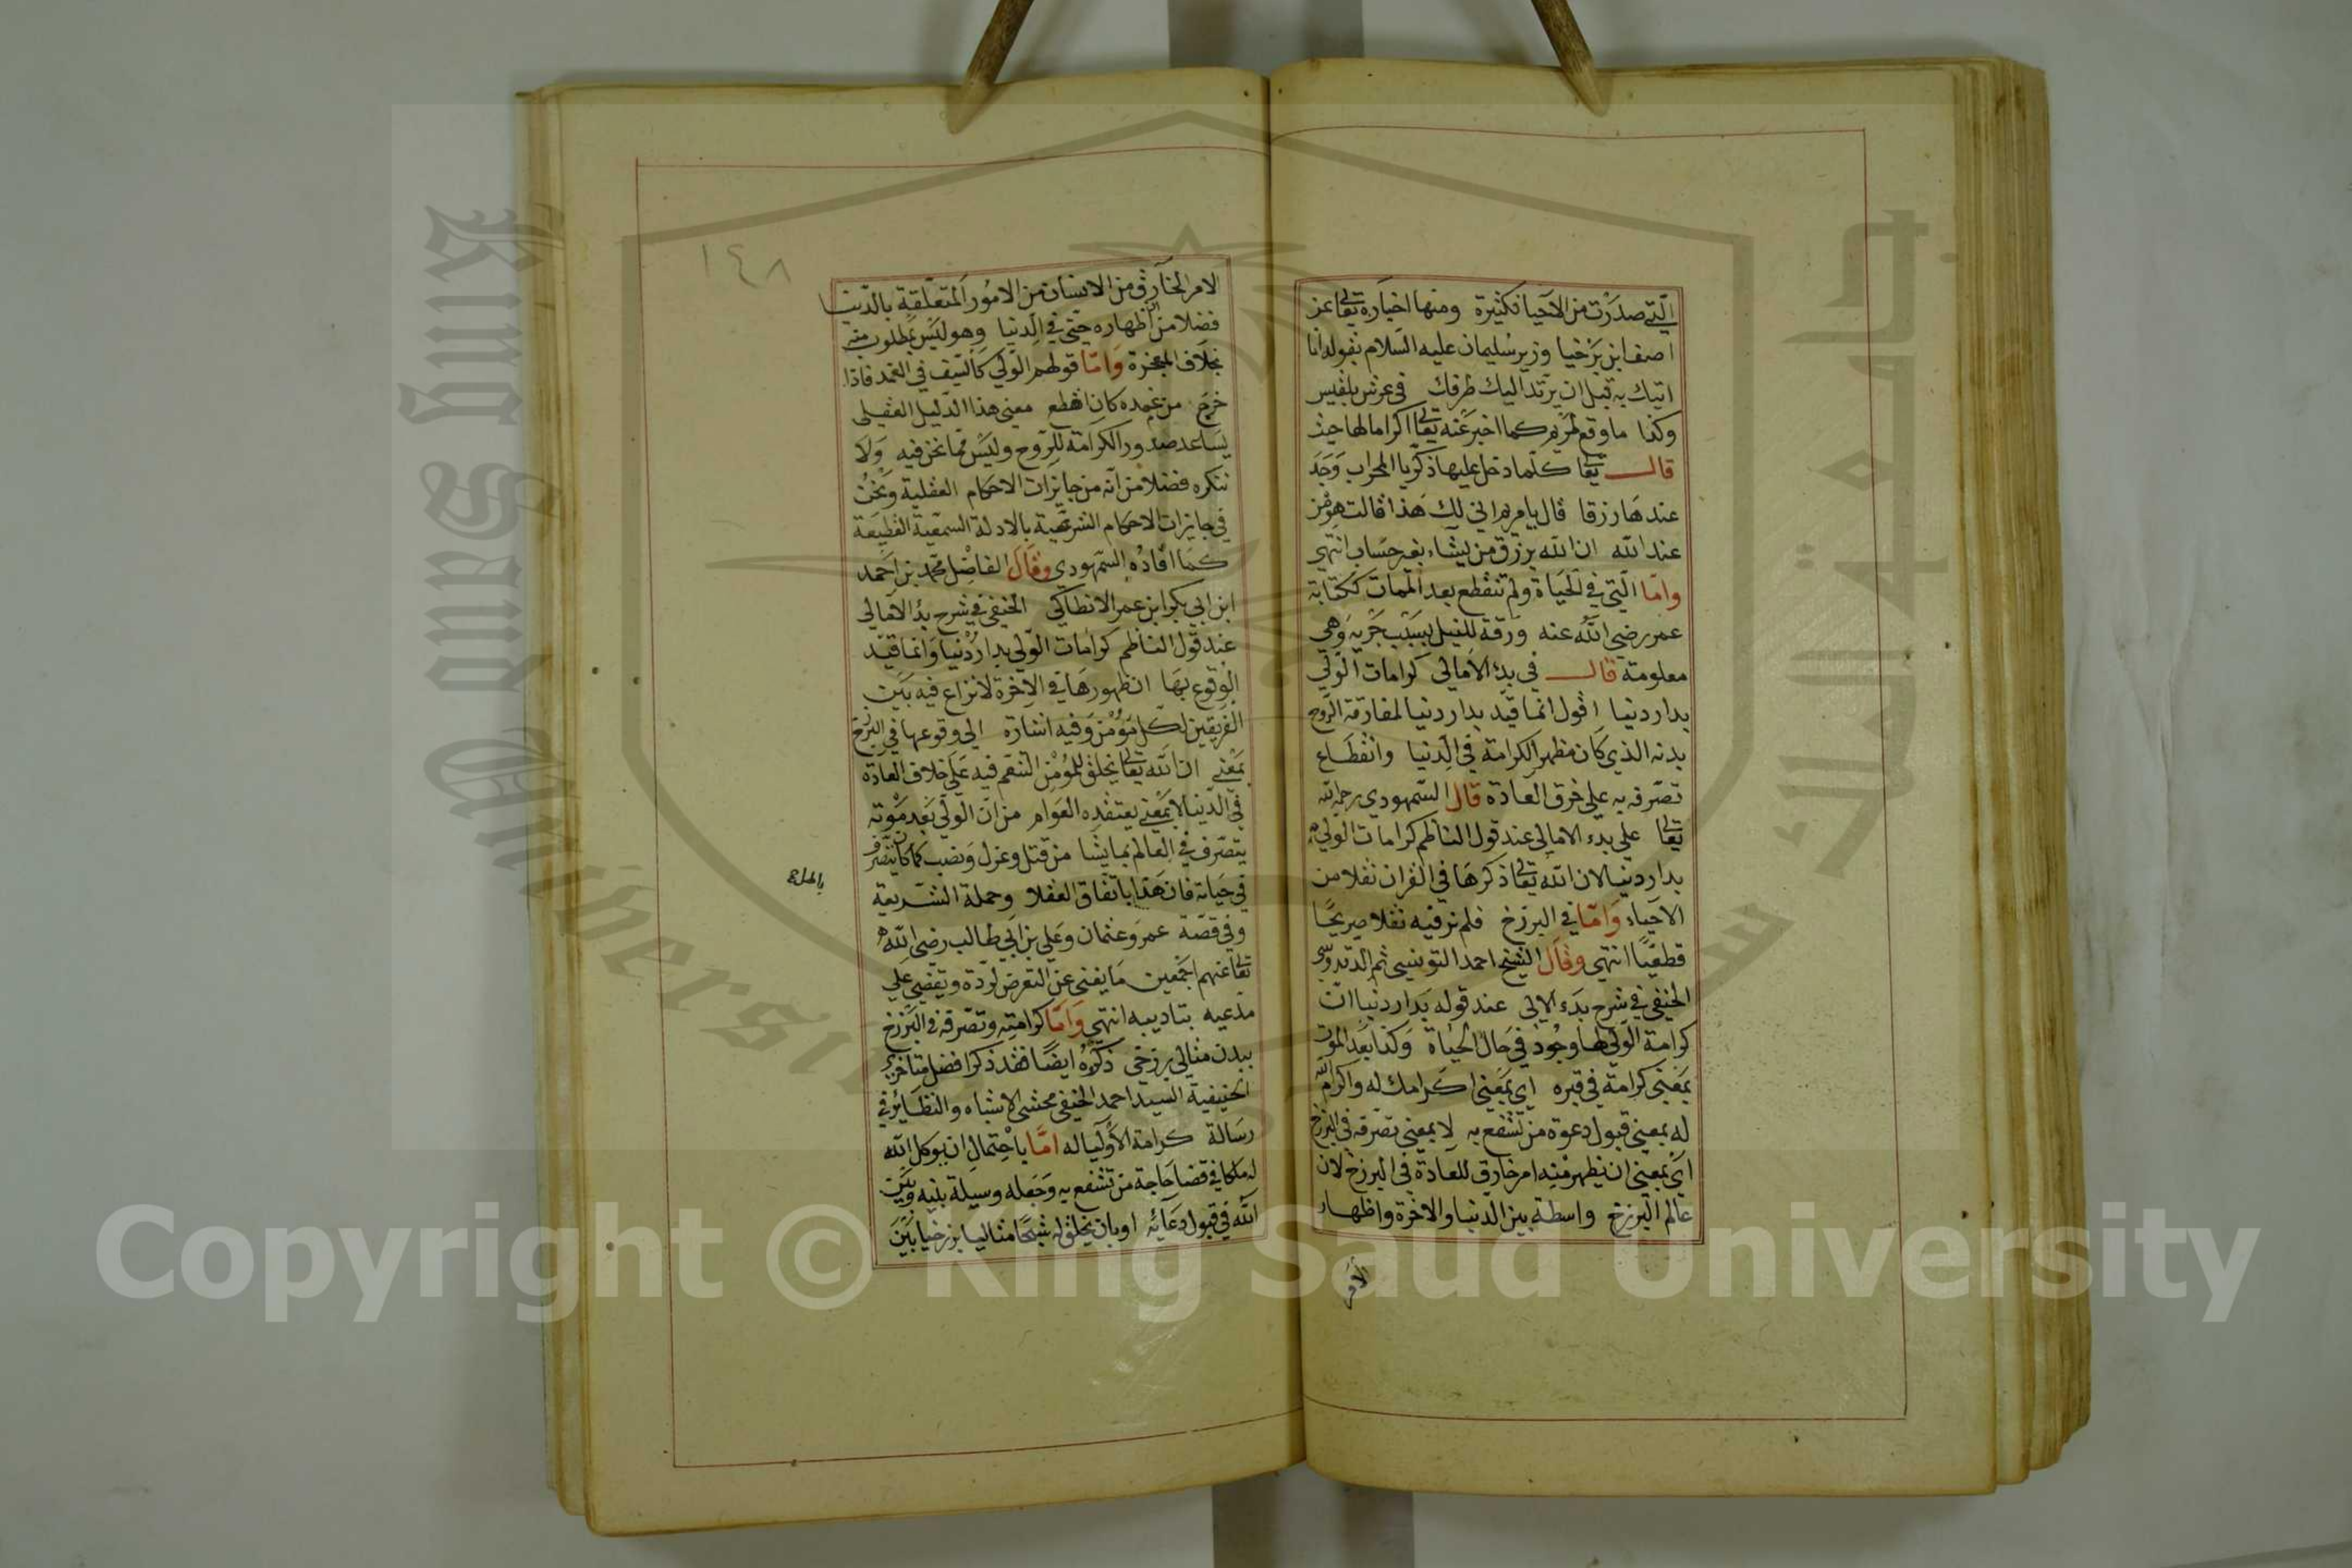 التي صدرت من الاحيا فكثيرة ومنها اخباره تعالى عن
اصف ابن برخيا وزير سليمان عليه السلام بقوله انا
اتيك به قبل ان يرتد اليك طرفك في عرش بلقيس
وكذا ما وقع لمريم كما اخبر عنه تعالى اكراما لها حيث
قال تعالى كلما دخل عليها زكريا المحراب وجد
عندها رزقا قال يا مريم اني لك هذا قالت هو من
عند الله ان الله يرزق من يشاء بغير حساب انتهى
واما التي في الحياة ولم تنقطع بعد الممات ككتابة
عمر رضي الله عنه ورقة للنيل بسبب جريه وهي
معلومة قال في بدء الامالي كرامات الولي
بدار دنيا اقول انما قيد بدار دنيا لمفارقة الروح
بدنه الذي كان مظهر الكرامة في الدنيا وانقطاع
تصرفه به على خرق العادة قال السمهودي رحمه الله
تعالى على بدء الامالي عند قول الناظم كرامات الولي
بدار دنيا لان الله تعالى ذكرها في القران نقلا من
الاحياء واما في البرزخ فلم نر فيه نقلا صريحا
قطعيا انتهى وقال الشيخ احمد التونسي ثم
الحنفي في شرح بدء الالي عند قوله بدار دنيا ان
كرامة الولي لها وجود في حال الحياة وكذا بعد الموت
بمعنى كرامة في قبره اي بمعنى اكرامك له واكرام الله
له بمعنى قبول دعوة من تشفع به لا بمعنى تصرفه في البرزخ
اي بمعنى ان يظهر منه امر خارق للعادة في البرزخ لان
عالم البرزخ واسطة بين الدنيا والاخرة واظهار
الامر
١٤٨
الامر الخارق من الانسان من الامور المتعلقة بالدنيا
فضلا من اظهاره حتى في الدنيا وهو ليس بمطلوب منه
بخلاف المعجزة واما قولهم الولي كالسيف في الغمد فاذا
خرج من غمده كان اقطع معنى هذا الدليل العقلي
يساعد صدور الكرامة للروح وليس مما نحن فيه ولا
ننكره فضلا من انه من جايزات الاحكام العقلية ونحن
في جايزات الاحكام الشرعية بالادلة السمعية القطيعة
كما افاده السمهودي وقال الفاضل محمد بن احمد
ابن ابي بكر ابن عمر الانطاكي الحنفي في شرح بدء الامالي
عند قول الناظم كرامات الولي بدار دنيا وانما قيد
الوقوع بها ان ظهورها في الاخرة لا نزاع فيه بين
الفريقين لكل مؤمن وفيه اشارة الى وقوعها في البرزخ
بمعنى ان الله تعالى يخلق للمؤمن التنعم فيه على خلاف العادة
في الدنيا لا بمعنى يعتقده العوام من ان الولي بعد موته
يتصرف في العالم بما يشا من قتل وعزل ونصب كما كان يتصرف
في حياته فان هذا باتفاق العقلا وحملة الشريعة
وفي قصة عمر وعثمان وعلي بن ابي طالب رضي الله
تعالى عنهم اجمعين ما يغني عن التعرض لرده ويقضي على
مدعيه بتاديبه انتهى واما كرامته وتصرفه في البرزخ
ببدن مثالي برزخي ذكروه ايضا فقد ذكر افضل متاخري
الحنيفية السيد احمد الحنفي محشي الاشباه والنظاير في
رسالة كرامة الاوليا له اما باحتمال ان يوكل الله
له ملكا في قضا حاجة من تشفع به وجعله وسيلة بينه وبين
الله في قبول دعائه او بان يخلق له شبحا مثاليا برزخيا بين